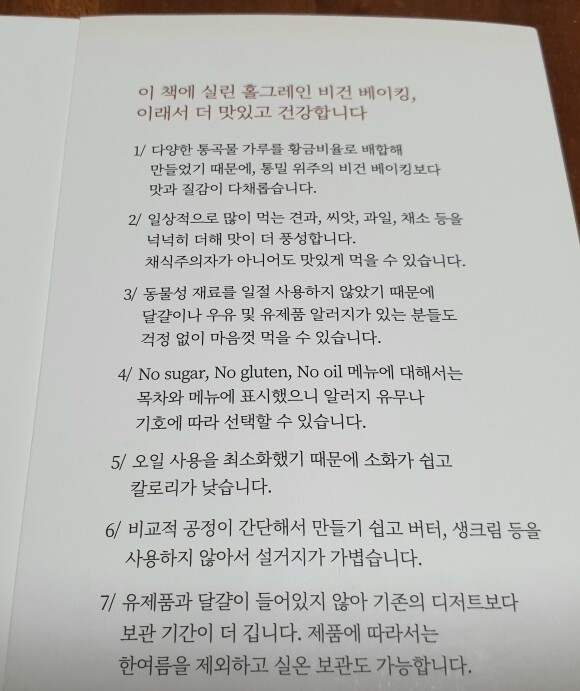 이 책에 실린 홀그레인 비건 베이킹,
이래서 더 맛있고 건강합니다
1/ 다양한 통곡물 가루를 황금비율로 배합해
만들었기 때문에, 통밀 위주의 비건 베이킹보다
맛과 질감이 다채롭습니다.
2/ 일상적으로 많이 먹는 견과, 씨앗, 과일, 채소 등을
넉넉히 더해 맛이 더 풍성합니다.
채식주의자가 아니어도 맛있게 먹을 수 있습니다.
3/ 동물성 재료를 일절 사용하지 않았기 때문에
달걀이나 우유 및 유제품 알러지가 있는 분들도
걱정 없이 마음껏 먹을 수 있습니다.
4/ No sugar, No gluten, No oil 메뉴에 대해서는
목차와 메뉴에 표시했으니 알러지 유무나
기호에 따라 선택할 수 있습니다.
5/ 오일 사용을 최소화했기 때문에 소화가 쉽고
칼로리가 낮습니다.
6/ 비교적 공정이 간단해서 만들기 쉽고 버터, 생크림 등을
사용하지 않아서 설거지가 가볍습니다.
7/ 유제품과 달걀이 들어있지 않아 기존의 디저트보다
보관 기간이 더 깁니다. 제품에 따라서는
한여름을 제외하고 실온 보관도 가능합니다.